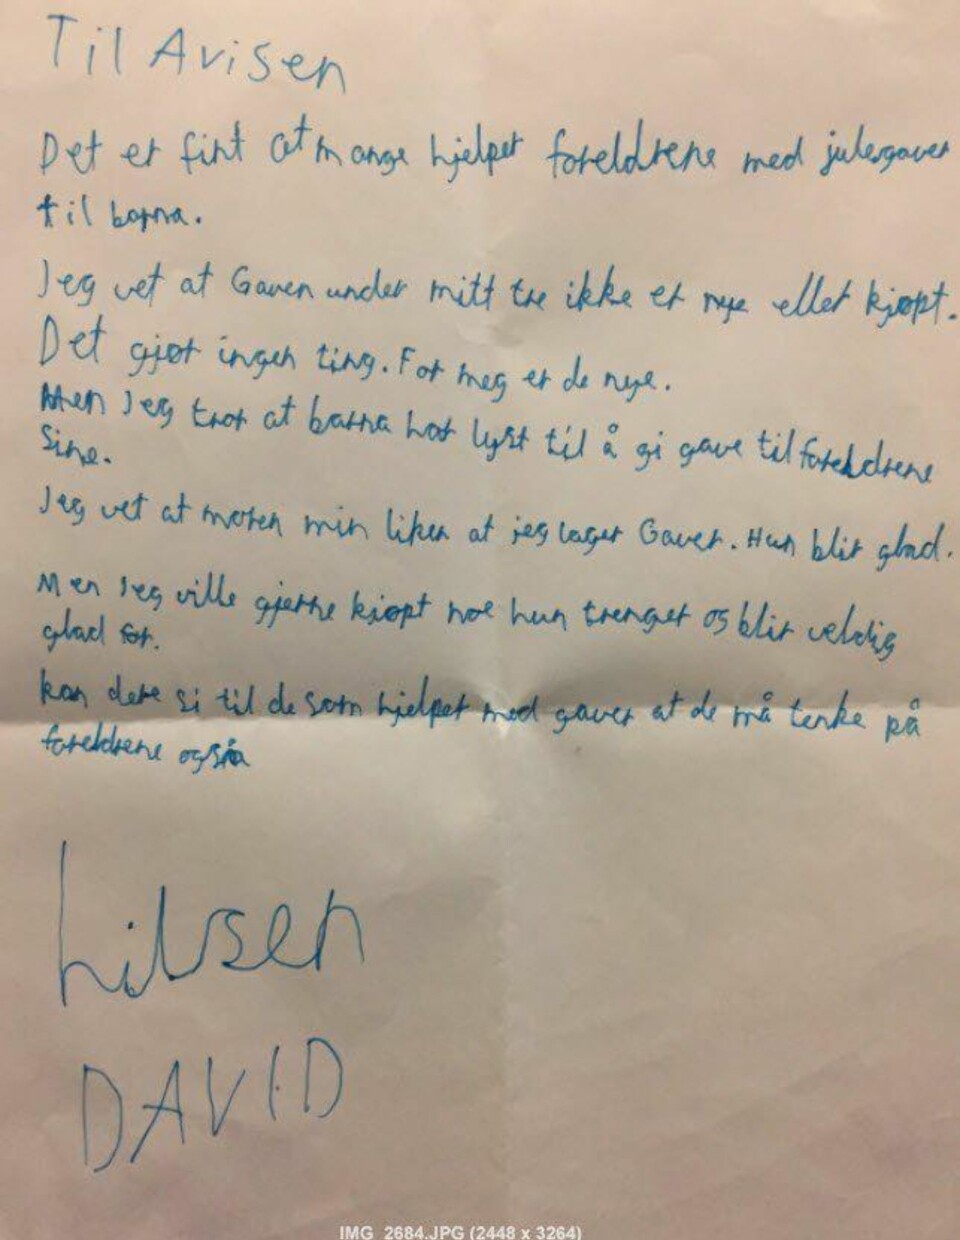 Til Avisen
Det er fint at mange hjelper foreldrene med julegaver
til barna.
Jeg vet at Gaven under mitt tre ikke er nye eller kjøpt.
Det gjør ingen ting. For meg er de nye.
Men Jeg tror at barna har lyst til å gi gave til foreldrene
Sine.
Jeg vet at moren min liker at jeg lager Gaver. Hun blir glad.
Men Jeg ville gjerne kjøpt noe hun trenger og blir veldig
glad for.
kan dere si til de som hjelper med gaver at de må tenke på
foreldrene også
hilsen
DAVID
IMG_2684.JPG (2448 x 3264)